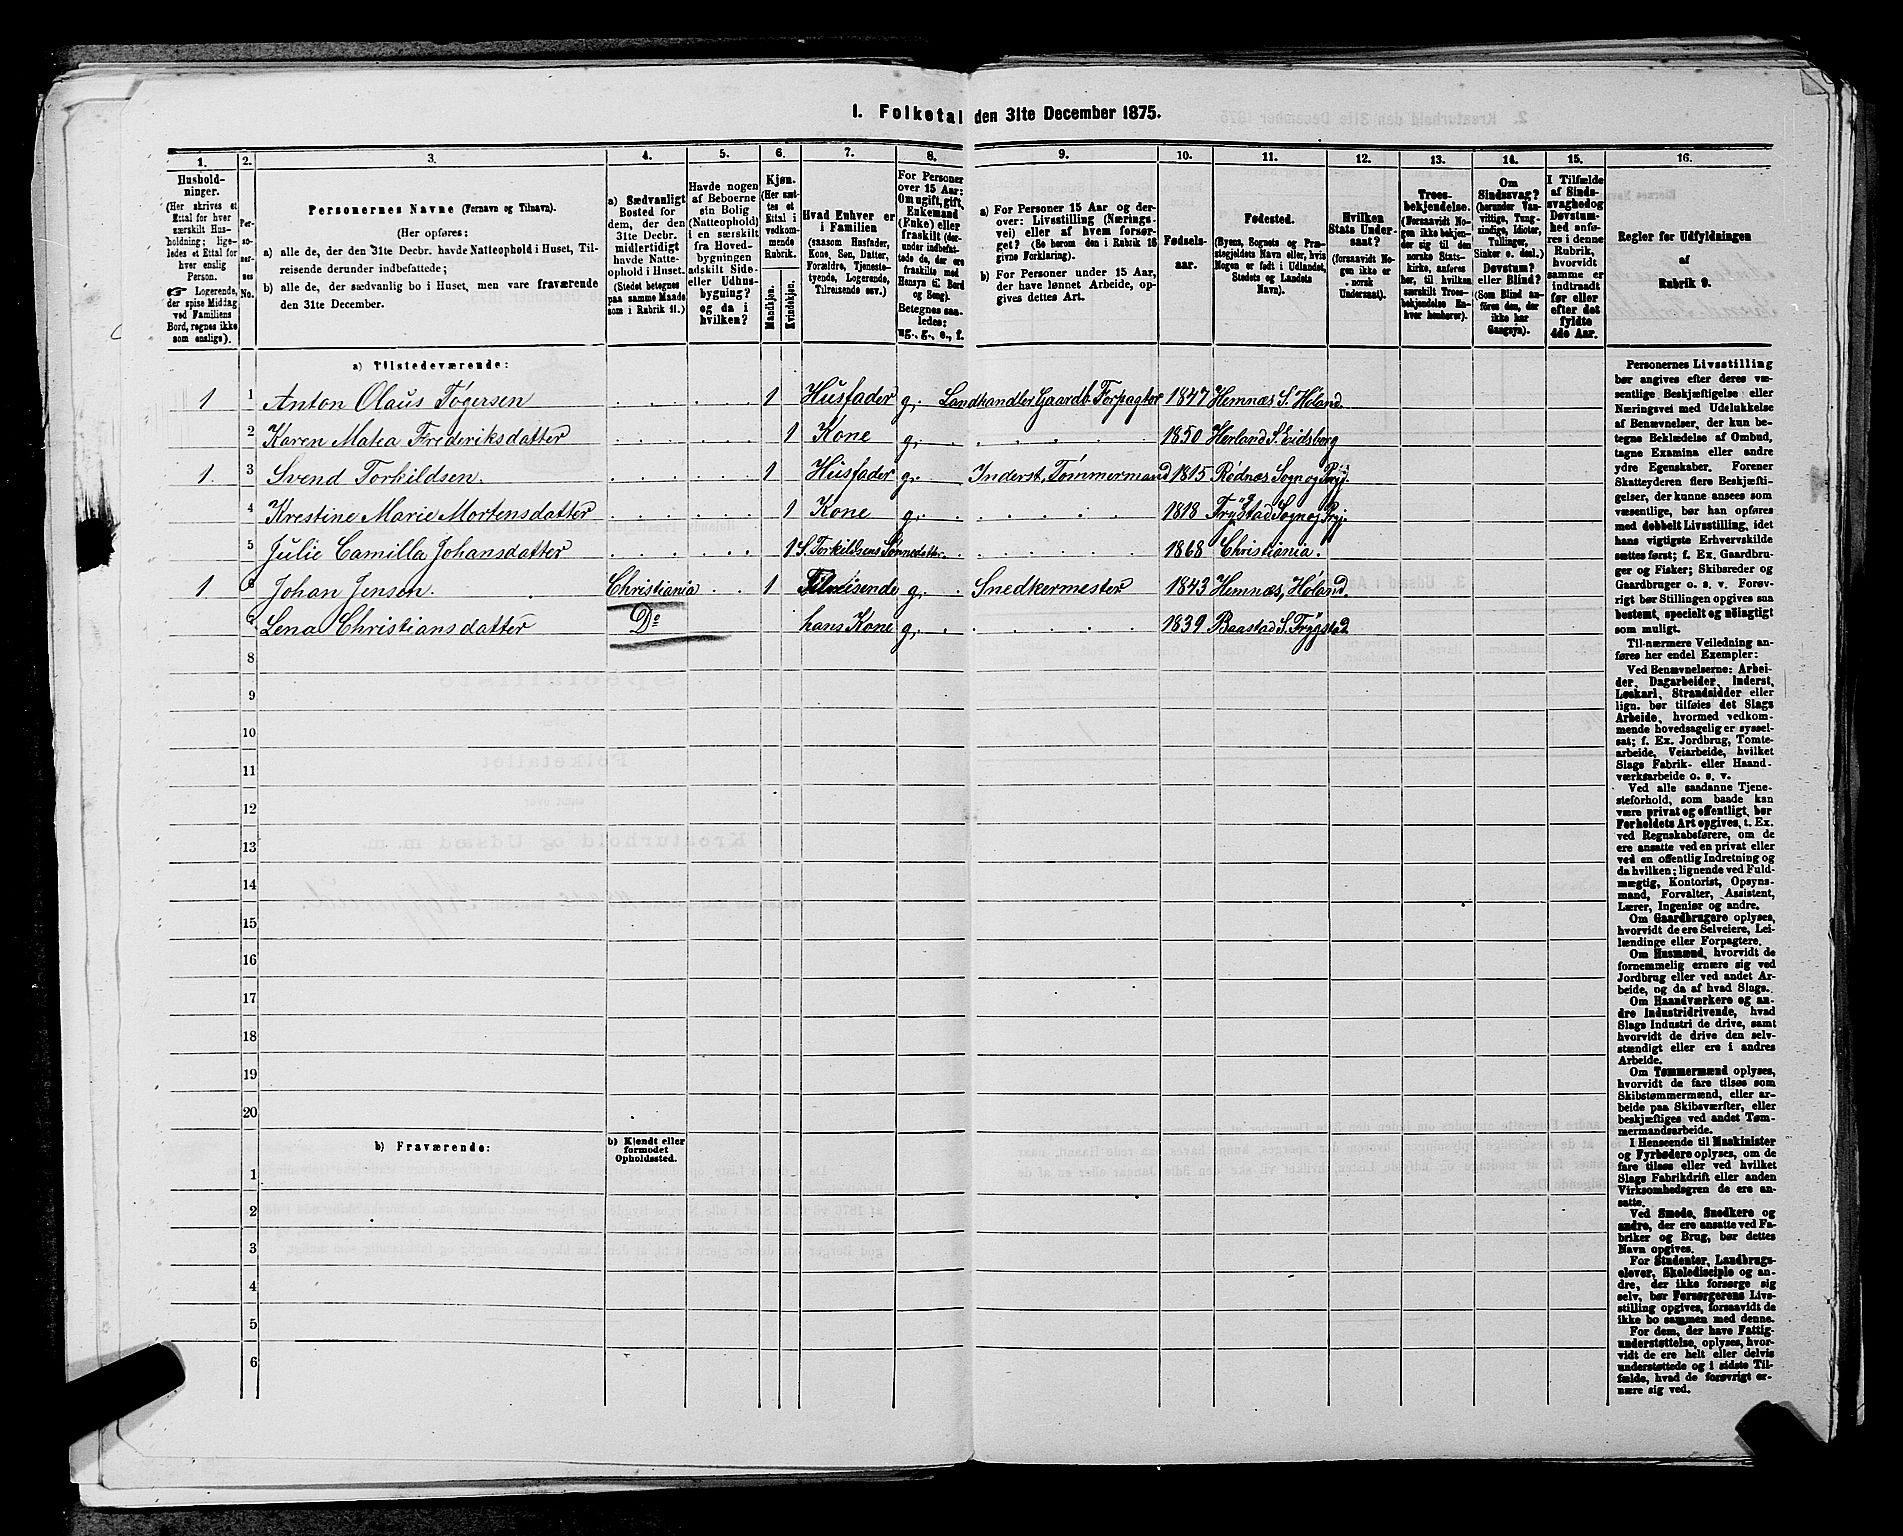 1. Folketal den 31te December 1875.
1. 2. 3. 4. 5. 6. 7. 8. 9. 10. 11. 12. 13. 14. 15. 16.
Hushold-
ninger.
(Her skrives et
Ettal for hver
særskilt Hus-
holdning; lige-
ledes et Ettal for
hver enslig
Person.
☞ Logerende,
der spise Middag
ved Familiens
Bord, regnes ikke
som enslige).
Per-
so-
ner-
nes
No.
Personernes Navne (Fornavn og Tilnavn).
(Her opføres:
a) alle de, der den 31te Decbr. havde Natteophold i Huset, Til-
reisende derunder indbefattede;
b) alle de, der sædvanlig bo i Huset, men vare fraværende
den 31te December.
a) Sædvanligt
Bosted for
dem, der den
31te Decbr.
midlertidigt
havde Natte-
ophold i Huset.
(Stedet betegnes
paa samme Maade
som i Rubrik 11.)
Havde nogen
af Beboerne
sin Bolig
(Natteophold)
i en særskilt
fra Hoved-
bygningen
adskilt Side-
eller Udhus-
bygning?
og da i
hvilken?
Kjøn.
(Her sæt-
tes et
Ettal i
vedkom-
mende
Rubrik.
Mandkjøn.
Kvindekjøn.
Hvad Enhver er
i Familien
(saasom Husfader,
Kone, Søn, Datter,
Forældre, Tjeneste-
tyende, Logerende,
Tilreisende osv.)
For Personer
over 15 Aar:
Om ugift, gift,
Enkemand
(Enke) eller
fraskilt (der-
under indbefat-
tede de, der ere
fraskilte med
Hensyn til Bord
og Seng).
Betegnes saa-
ledes:
ug., g., e., f.
a) For Personer 15 Aar og der-
over: Livsstilling (Nærings-
vei) eller af hvem forsør-
get? (Se herom den i Rubrik 16
givne Forklaring).
b) For Personer under 15 Aar,
der have lønnet Arbeide, op-
gives dettes Art.
Fødsels-
aar.
Fødested.
(Byens, Sognets og Præ-
stegjeldets Navn eller, hvis
Nogen er født i Udlandet,
Stedets og Landets
Navn).
Hvilken
Stats Under-
saat?
(forsaavidt No-
gen ikke er
norsk
Undersaat).
Troes-
bekjendelse.
(Forsaavidt No-
gen ikke bekjen-
der sig til den
norske Stats-
kirke, anføres
her, til hvilken
særskilt Troes-
bekjendelse En-
hver henhører).
Om
Sindssvag?
(herunder Van-
vittige, Tung-
sindige, Idioter,
Tullinger,
Sinker o. desl.)
Døvstum?
eller Blind?
(Som Blind an-
føres den, der
ikke har
Gangsyn).
I Tilfælde
af Sinds-
svaghed og
Døvstum-
hed anfø-
res i denne
Rubrik,
hvorvidt
samme er
indtraadt
før eller
efter det
fyldte
4de Aar.
Regler for Udfyldningen
af
Rubrik 9.
a) Tilstedeværende:
1 1 Anton Olaus Tøgersen 1 Husfader g. Landhandler Gaardb. Forpagter 1847 Hemnæs S. Høland
2 Karen Matea Frederiksdatter 1 Kone g. 1850 Herland S. Eidsberg
1 3 Svend Torkildsen. 1 Husfader g. Inderst, Tømmermand 1815 Rødnæs Sogn og Prgj.
4 Krestine Marie Mortensdatter 1 Kone g. 1818 Trygstad Sogn og Prgj.
5 Julie Camilla Johansdatter 1 S. Torkildsens Sønnedatter. 1868 Christiania.
1 6 Johan Jensen. Christiania 1 Tilreisende g. Snedkermester 1843 Hemnæs, Høland.
7 Lena Christiansdatter Do hans Kone g. 1839 Baastad S. Trygstad
8
9
10
11
12
13
14
15
16
17
18
19
20
b) Fraværende:
b) Kjendt eller
formodet
Opholdssted.
1
2
3
4
5
6
Personernes Livsstilling
bør angives efter deres væ-
sentlige Beskjæftigelse eller
Næringsvei med Udelukkelse
af Benævnelser, der kun be-
tegne Beklædelse af Ombud,
tagne Examina eller andre
ydre Egenskaber. Forener
Skatteyderen flere Beskjæfti-
gelser, der kunne ansees som
væsentlige, bør han opføres
med dobbelt Livsstilling, idet
hans vigtigste Erhvervskilde
sættes først; f. Ex. Gaardbru-
ger og Fisker; Skibsreder og
Gaardbruger o. s. v. Forøv-
rigt bør Stillingen opgives saa
bestemt, specielt og nøiagtigt
som muligt.
Til nærmere Veiledning an-
føres her endel Exempler:
Ved Benævnelserne: Arbei-
der, Dagarbeider, Inderst,
Løskarl, Strandsidder eller
lign. bør tilføies det Slags
Arbeide, hvormed vedkom-
mende hovedsagelig er syssel-
sat; f. Ex. Jordbrug, Tomte-
arbeide, Veiarbeide, hvilket
Slags Fabrik- eller Haand-
værksarbeide o. s. v.
Ved alle saadanne Tjene-
steforhold, som baade kan
være privat og offentligt, bør
Forholdets Art opgives, t. Ex.
ved Regnskabsførere, om de
ere ansatte ved en privat eller
ved en offentlig Indretning og
da hvilken; lignende ved Fuld-
mægtig, Kontorist, Opsyns-
mand, Forvalter, Assistent,
Lærer, Ingeniør og andre.
Om Gaardbrugere oplyses,
hvorvidt de ere Selveiere, Lei-
lændinge eller Forpagtere.
Om Husmænd, hvorvidt de
fornemmelig ernære sig ved
Jordbrug eller ved andet Ar-
beide, og da af hvad Slags.
Om Haandværkere og an-
dre Industridrivende, hvad
Slags Industri de drive, samt
hvorvidt de drive den selv-
stændigt eller ere i andres
Arbeide.
Om Tømmermænd oplyses,
hvorvidt de fare tilsøs som
Skibstømmermænd, eller ar-
beide paa Skibsværfter, eller
beskjæftiges ved andet Tøm-
mermandsarbeide.
I Henseende til Maskinister
og Fyrbødere oplyses, om de
fare tilsøs eller ved hvilket
Slags Fabrikdrift eller anden
Virksomhedsgren de ere an-
satte.
Ved Smede, Snedkere og
andre, der ere ansatte ved Fa-
briker og Brug, bør dettes
Navn opgives.
For Studenter, Landbrugs-
elever, Skoledisciple og an-
dre, der ikke forsørge sig
selv, bør Forsørgerens Livs-
stilling opgives, forsaavidt de
ikke bo sammen med denne.
For dem, der have Fattig-
understøttelse, oplyses, hvor-
vidt de ere helt eller delvis
understøttede og i sidste Til-
fælde, hvad de forøvrigt er-
nære sig ved.